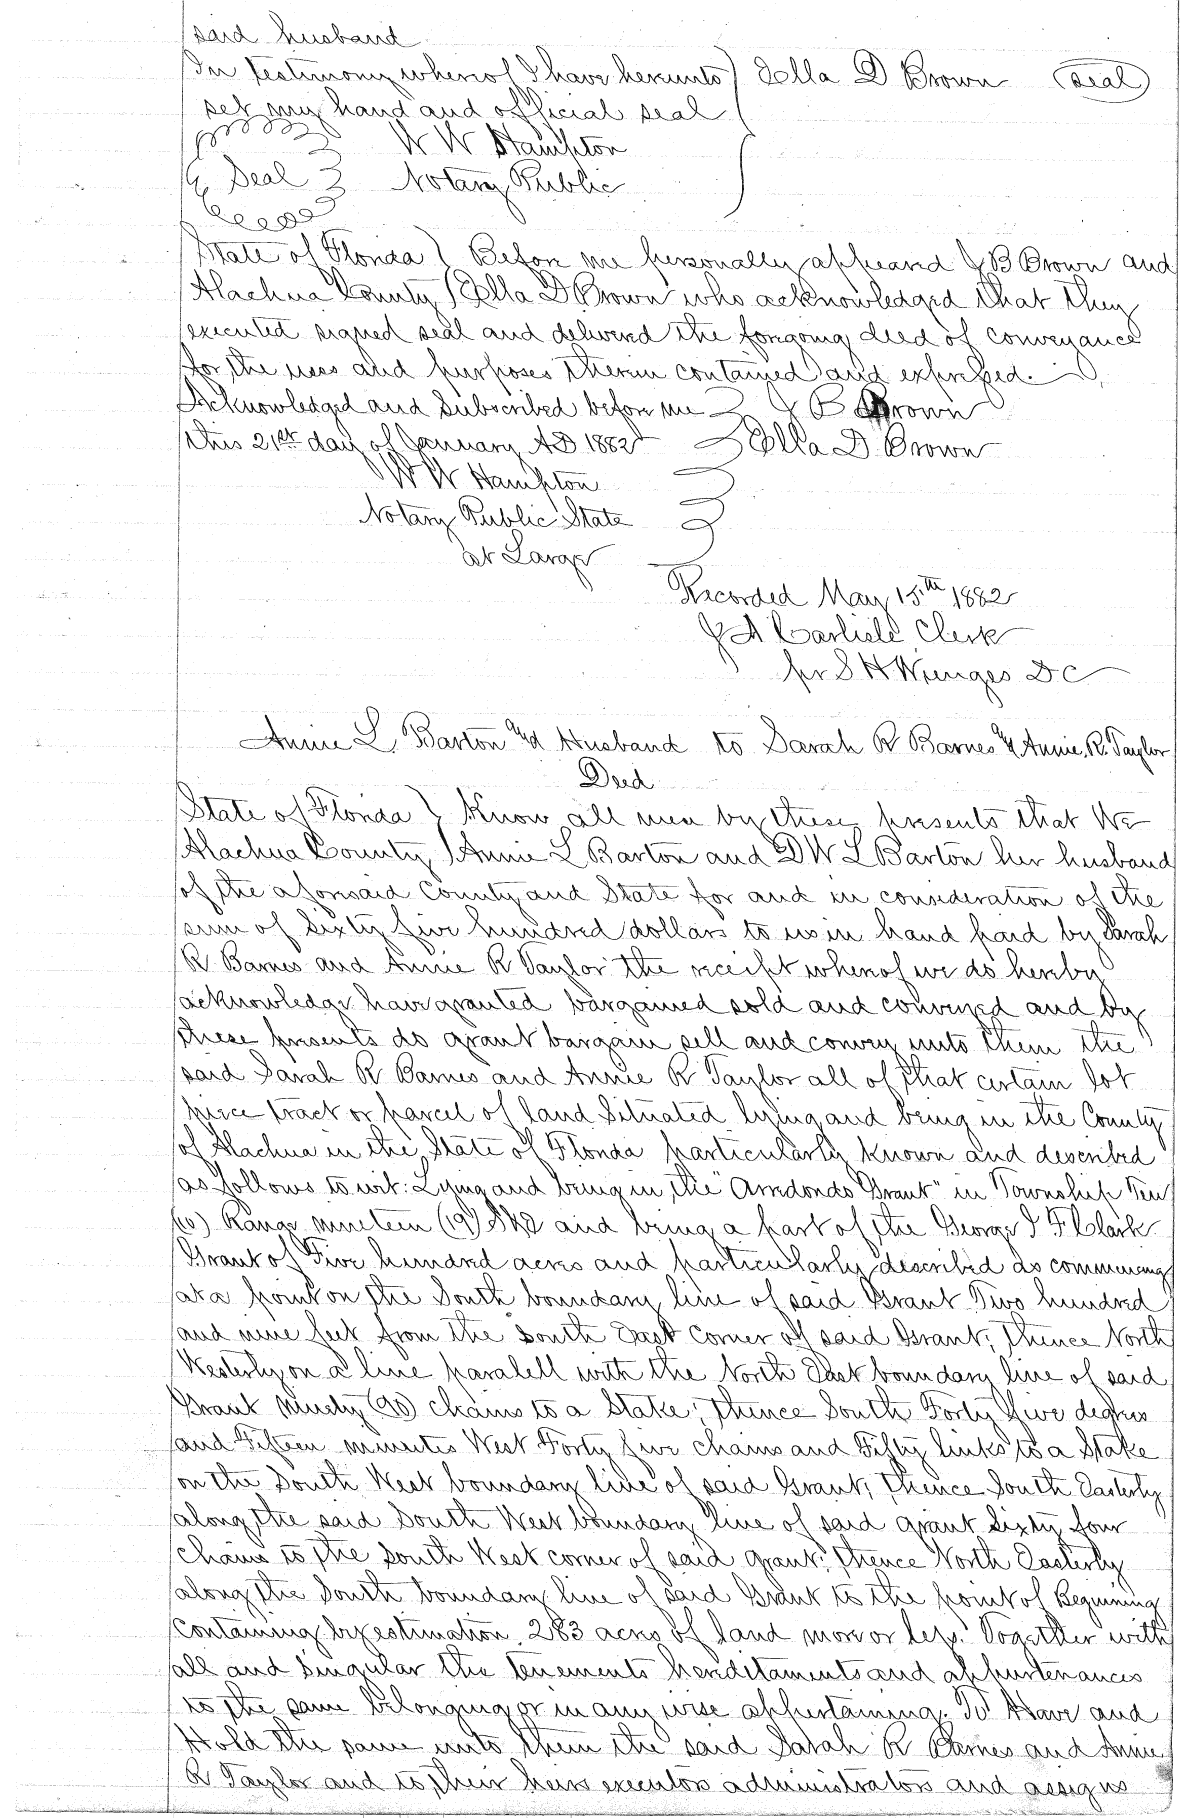 said husband
In testimony whereof I have hereunto ) Ella D Brown (seal)
set my hand and official seal
W W Hampton
Seal Notary Public
State of Florida } Before me personally appeared J B Brown and
Alachua County } Ella D Brown who acknowledged that they
executed signed seal and delivered the foregoing deed of conveyance
for the uses and purposes therein contained and expressed.
Acknowledged and Subscribed before me J B Brown
this 21st day of January AD 1882 Ella D. Brown
W W Hampton
Notary Public State
at Large
Recorded May 15th 1882
J A Carlisle Clerk
per S H Wienges DC
Annie L Barton and Husband to Sarah R Barnes & Annie. R. Taylor
Deed
State of Florida } Know all men by these presents that We
Alachua County } Annie L Barton and D W L Barton her husband
of the aforesaid County and State for and in consideration of the
sum of Sixty five hundred dollars to us in hand paid by Sarah
R Barnes and Annie R Taylor the receipt whereof we do hereby
acknowledge have granted bargained sold and conveyed and by
these presents do grant bargain sell and convey unto them the
said Sarah R Barnes and Annie R Taylor all of that certain lot
piece tract or parcel of land Situated lying and being in the County
of Alachua in the State of Florida particularly known and described
as follows to wit: Lying and being in the "Arredondo Grant" in Township Ten
(10) Range nineteen (19) S & E and being a part of the George I F Clark
Grant of Five hundred acres and particularly described as commencing
at a point on the South boundary line of said Grant Two hundred
and nine feet from the South East Corner of said Grant; thence North
Westerly on a line paralell with the North East boundary line of said
Grant Ninety (90) chains to a Stake; thence South Forty five degrees
and Fifteen minutes West Forty five chains and Fifty links to a Stake
on the South West boundary line of said Grant; thence South Easterly
along the said South West boundary line of said grant Sixty four
chains to the South West corner of said grant; thence North Easterly
along the South boundary line of said Grant to the point of Beginning
Containing by estimation 283 acres of land more or less. Together with
all and Singular the tenements hereditaments and appurtenances
to the same belonging or in any wise appertaining. To Have and
Hold the same unto them the said Sarah R Barnes and Annie
R Taylor and to their heirs executors administrators and assigns